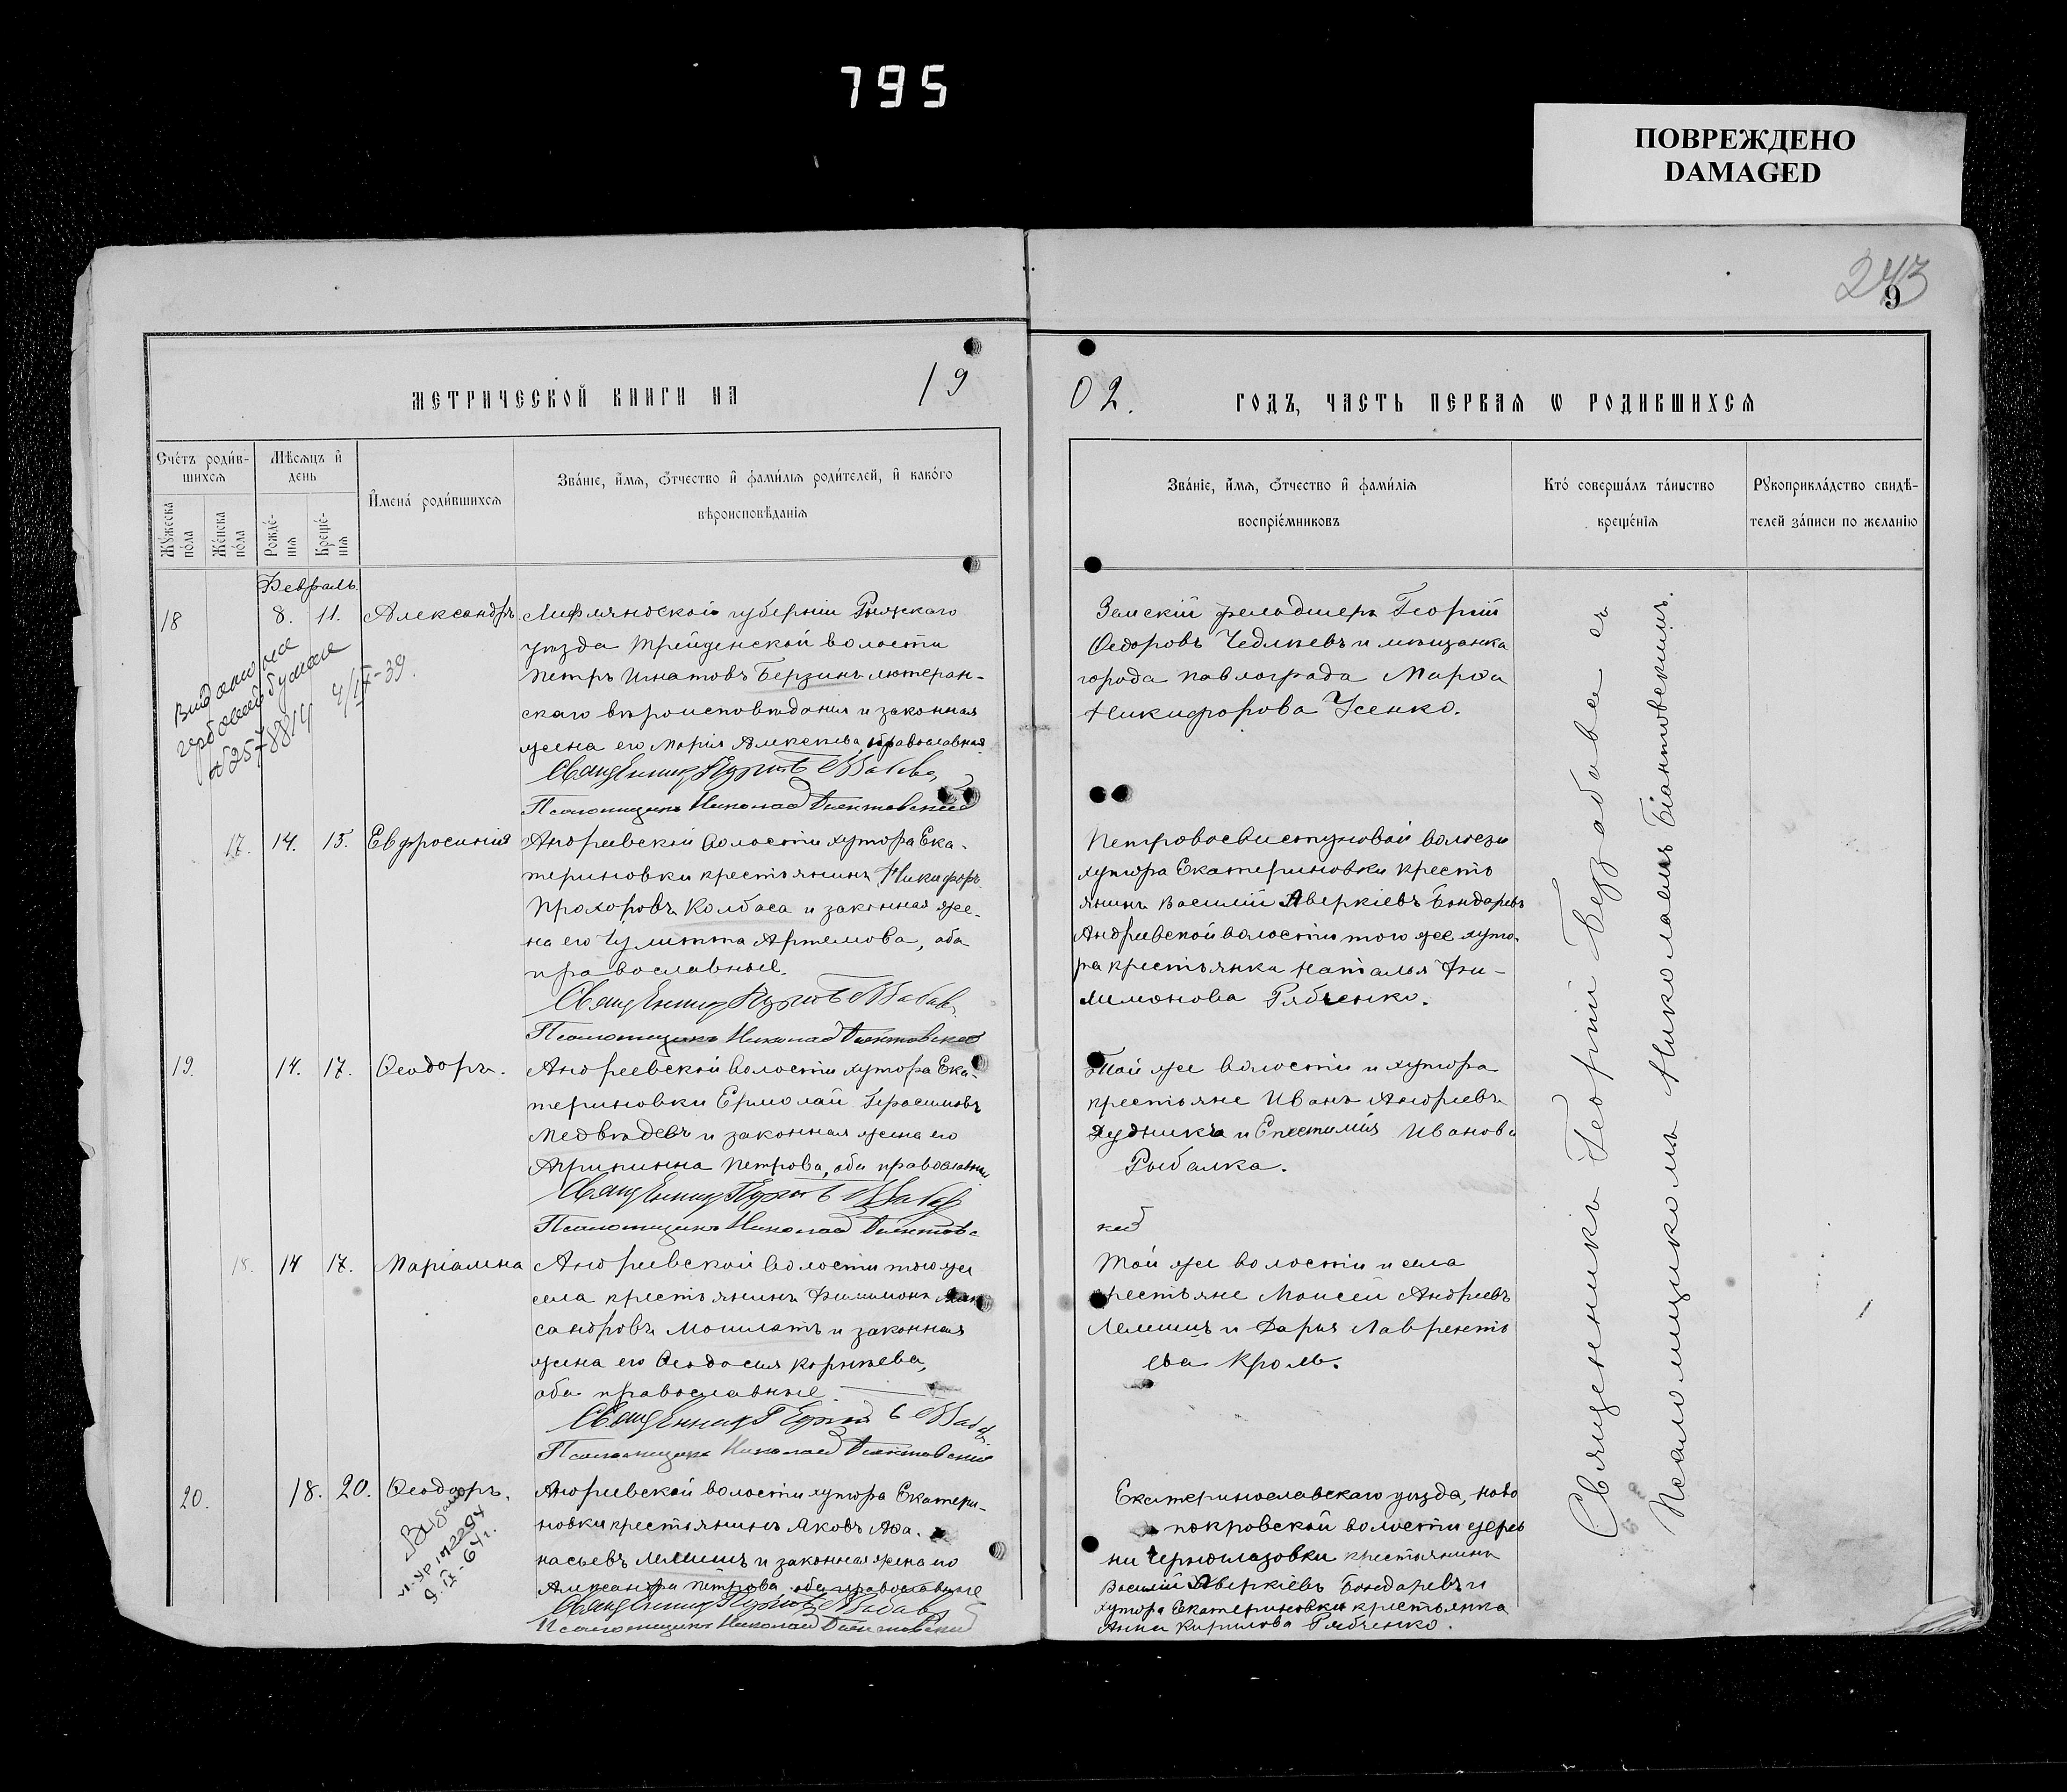 795
ПОВРЕЖДЕНО
DAMAGED
243
9
МЕТРИЧЕСКОЙ КНИГИ НА 19
02. ГОДЪ, ЧАСТЬ ПЕРВАЯ Ѡ РОДИВШИХСЯ
Счетъ родившихся
Мѣсяцъ и день
Мужеска пола
Женска пола
Рожденія
Крещенія
Имена родившихся
Званіе, имя, отчество и фамилія родителей, и какого
вѣроисповѣданія
Званіе, имя, отчество и фамилія
воспріемниковъ
Кто совершалъ таинство
крещенія
Рукоприкладство свидѣ-
телей записи по желанію
Февраль
18 8. 11. Александръ
Лифляндской губерніи Рижскаго
уѣзда Трейденской волости
Петръ Игнатовъ Берзинъ лютеран-
скаго вѣроисповѣданія и законная
жена его Марія Алексѣева, православная
Священникъ Георгій
Псаломщикъ Николай Біантовскій
гербовой бумаге
Земскій фельдшеръ Георгій
Ѳедоровъ и мѣщанка
города Павлограда Марѳа
Никифорова Усенко.
17. 14. 15. Евфросинія
Андреевской волости хутора Ека-
териновки крестьянинъ Никифоръ
Прохоровъ Колбаса и законная же-
на его Улитта Артемова, оба
православные.
Священникъ Георгій
Псаломщикъ Николай Біантовскій
Петровосвистуновой волости
хутора Екатериновки кресть
янинъ Василій Аверкіевъ Бондаревъ
Андреевской волости того же хуто-
ра крестьянка Наталья Фи-
лимонова Рябченко.
19. 14. 17. Ѳеодоръ.
Андреевской волости хутора Ека-
териновки Ермолай Герасимовъ
Медвѣдевъ и законная жена его
Агрипина Петрова, оба православные
Священникъ Георгій
Псаломщикъ Николай Біантовс
кій
Той же волости и хутора
крестьяне Иванъ Андреевъ
и Епистимія Иванова
Рыбалка.
18. 14 17. Маріамна
Андреевской волости того же
села крестьянинъ Филимонъ Алек
сандровъ и законная
жена его Ѳеодосія Корнѣева,
оба православные.
Священникъ Георгій
Псаломщикъ Николай Біантовскій
Той же волости и села
крестьяне Моисей Андреевъ
Лемишъ и Дарья Лаврентъ
ева Кроль.
20. 18. 20. Ѳеодоръ.
Андреевской волости хутора Екатери-
новки крестьянинъ Яковъ Аѳа-
насьевъ Лемишъ и законная жена его
Александра Петрова оба православные
Священникъ Георгій
Псаломщикъ Николай Біантовскій
Екатеринославскаго уѣзда, ново
покровской волости дерев
ни крестьянинъ
Василій Аверкіевъ Бондаревъ и
хутора Екатериновки крестьянка
Анна Кирилова Рябченко.
Священникъ Георгій Беззабава съ
Псаломщикомъ Николаемъ Біантовскимъ.